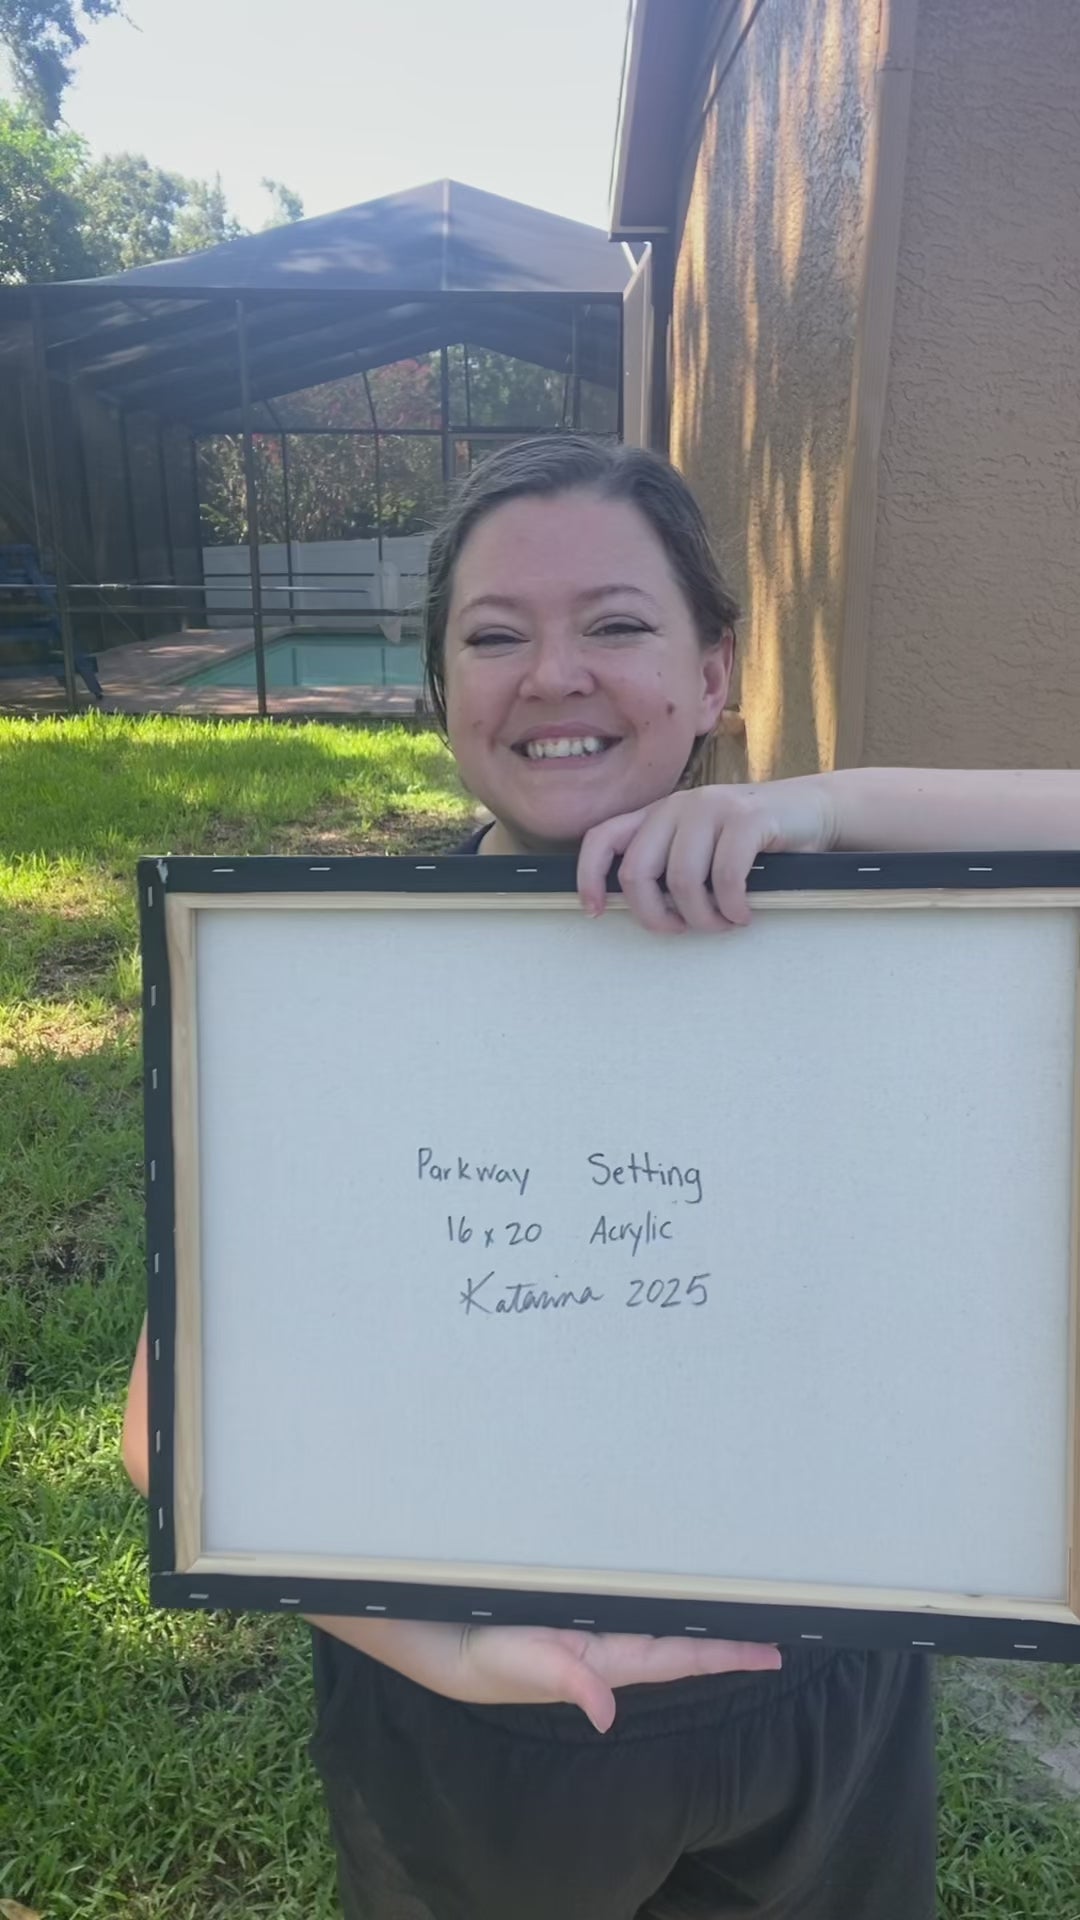 Parkway Setting
16 x 20 Acrylic
Katarina 2025